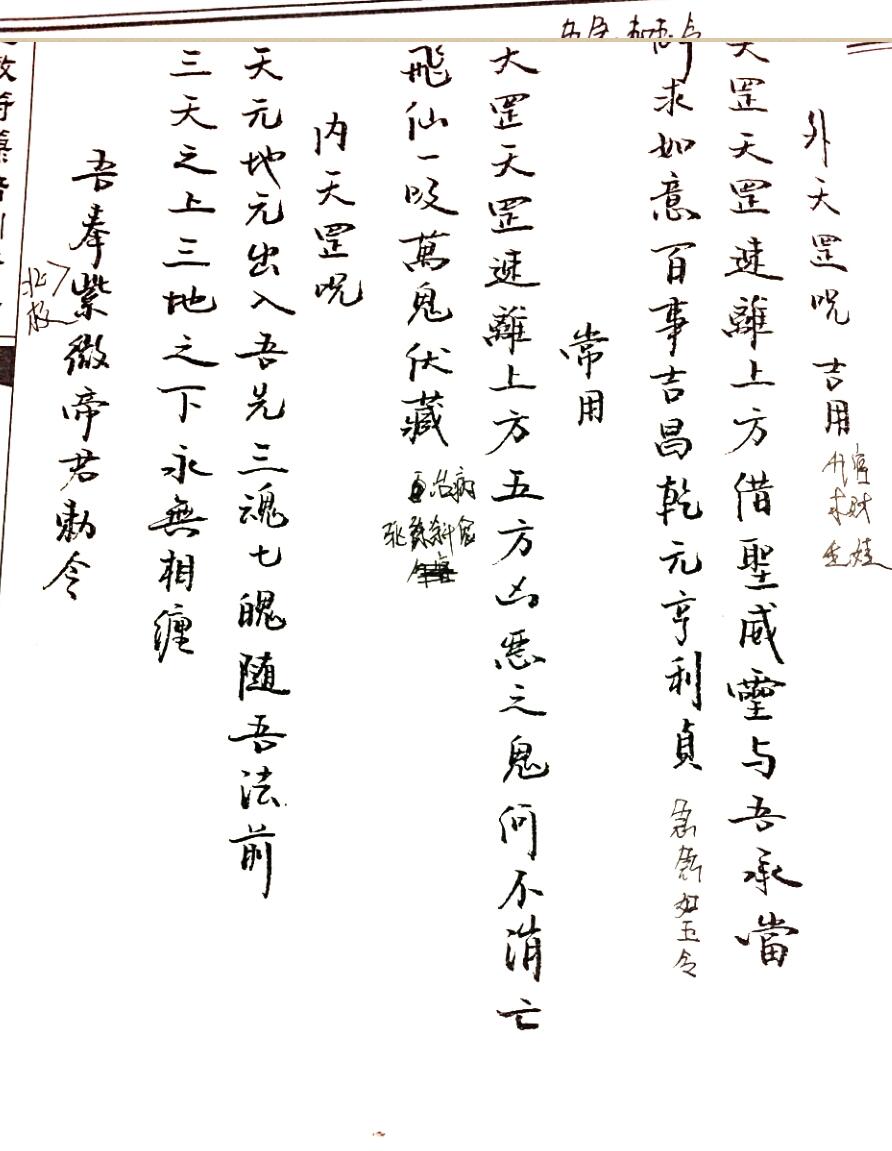 外天罡咒 吉用
求財
天罡天罡速離上方借聖威靈与吾承當
所求如意百事吉昌乾元亨利貞 急急如玉令
常用
大罡天罡速離上方五方凶惡之鬼何不消亡
飛仙一吸萬鬼伏藏
治病
内天罡咒
天元地元出入吾先三魂七魄随吾法前
三天之上三地之下永無相纏
吾奉紫微帝君勅令
北极